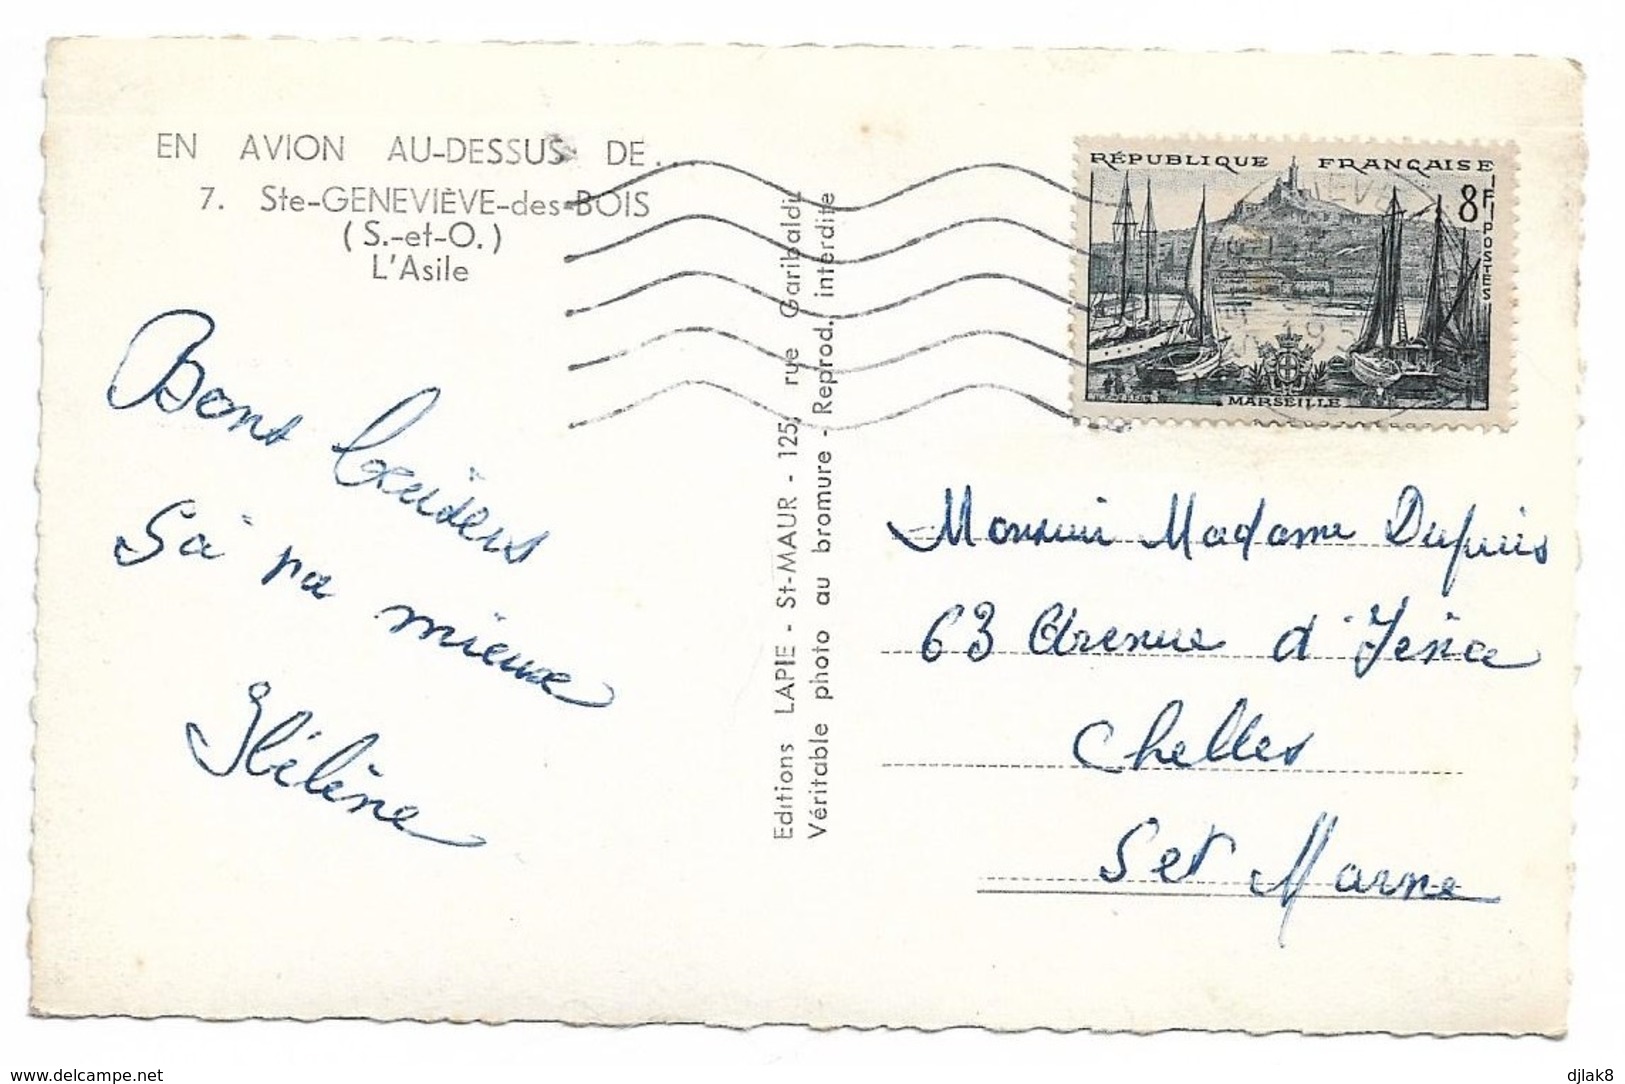 EN AVION AU-DESSUS DE...
7. Ste-GENEVIÈVE-des-BOIS
(S.-et-O.)
L'Asile
Bons baisers
Sa va mieux
Hélène
Editions LAPIE - St-MAUR - 125, rue Garibaldi
Véritable photo au bromure - Reprod. interdite
RÉPUBLIQUE FRANÇAISE
8F
POSTES
MARSEILLE
Monsieur Madame Dupuis
63 Avenue d'Iéna
Chelles
Set Marne
www.delcampe.net
djlak8